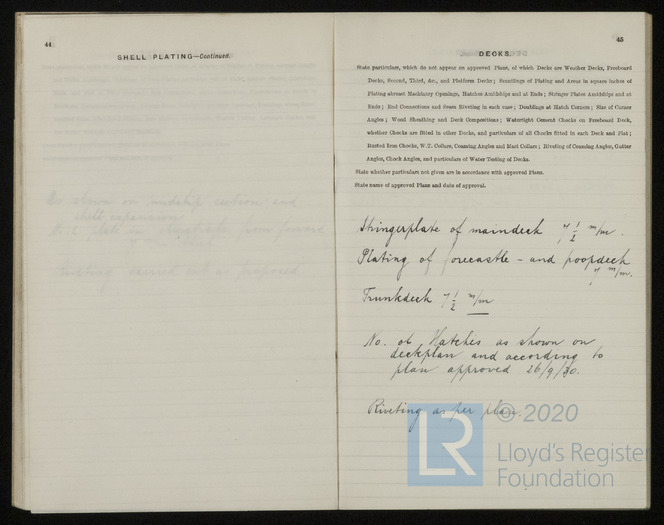 44
SHELL PLATING—Continued.
As shown on midship section and
shell expansion
No 2 plate in
from forward
Riveting carried out as proposed
45
DECKS.
State particulars, which do not appear on approved Plans, of which Decks are Weather Decks, Freeboard
Decks, Second, Third, &c., and Platform Decks; Scantlings of Plating and Areas in square inches of
Plating abreast Machinery Openings, Hatches Amidships and at Ends; Stringer Plates Amidships and at
Ends; End Connections and Seam Riveting in each case; Doublings at Hatch Corners; Size of Corner
Angles; Wood Sheathing and Deck Compositions; Watertight Cement Chocks on Freeboard Deck,
whether Chocks are fitted in other Decks, and particulars of all Chocks fitted in each Deck and Flat;
Rusted Iron Chocks, W.T. Collars, Coaming Angles and Mast Collars; Riveting of Coaming Angles, Gutter
Angles, Chock Angles, and particulars of Water Testing of Decks.
State whether particulars not given are in accordance with approved Plans.
State name of approved Plans and date of approval.
Stringerplate of maindeck 7 1/2 m/m.
Plating of forecastle - and poopdeck
7 m/m.
Trunkdeck 7 1/2 m/m
No. of Hatches as shown on
deckplan and according to
plan approved 26/9/30.
Riveting as per plan.
LR
© 2020
Lloyd's Register
Foundation